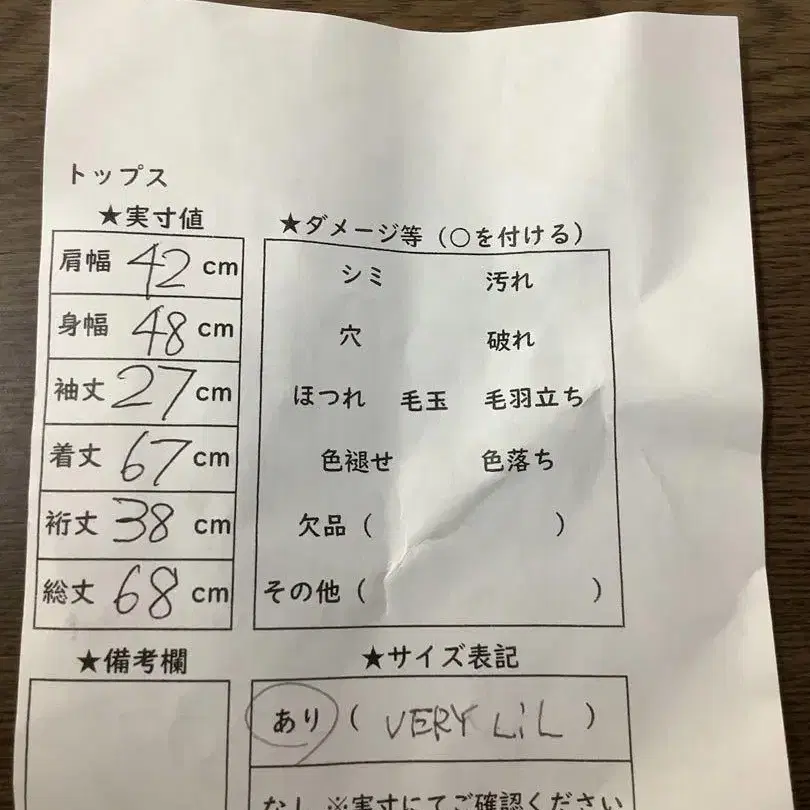 トップス
★実寸値
肩幅 42 cm
身幅 48 cm
袖丈 27 cm
着丈 67 cm
裄丈 38 cm
総丈 68 cm
★ダメージ等（○を付ける）
シミ 汚れ
穴 破れ
ほつれ 毛玉 毛羽立ち
色褪せ 色落ち
欠品（ ）
その他（ ）
★備考欄
★サイズ表記
あり（ VERY LiL ）
なし ※実寸にてご確認ください